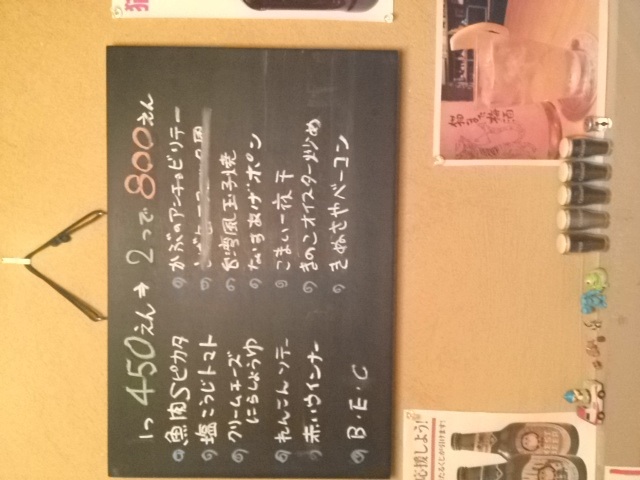 1つ 450えん → 2つで 800えん
魚肉Sピカタ
塩こうじトマト
クリームチーズ
にらしょうゆ
れんこんソテー
赤いウインナー
B・E・C
かぶのアンチョビソテー
台湾風玉子焼
なすあげポン
こまい一夜干
きのこオイスター炒め
きぬさやベーコン
梅酒
応援しよう!